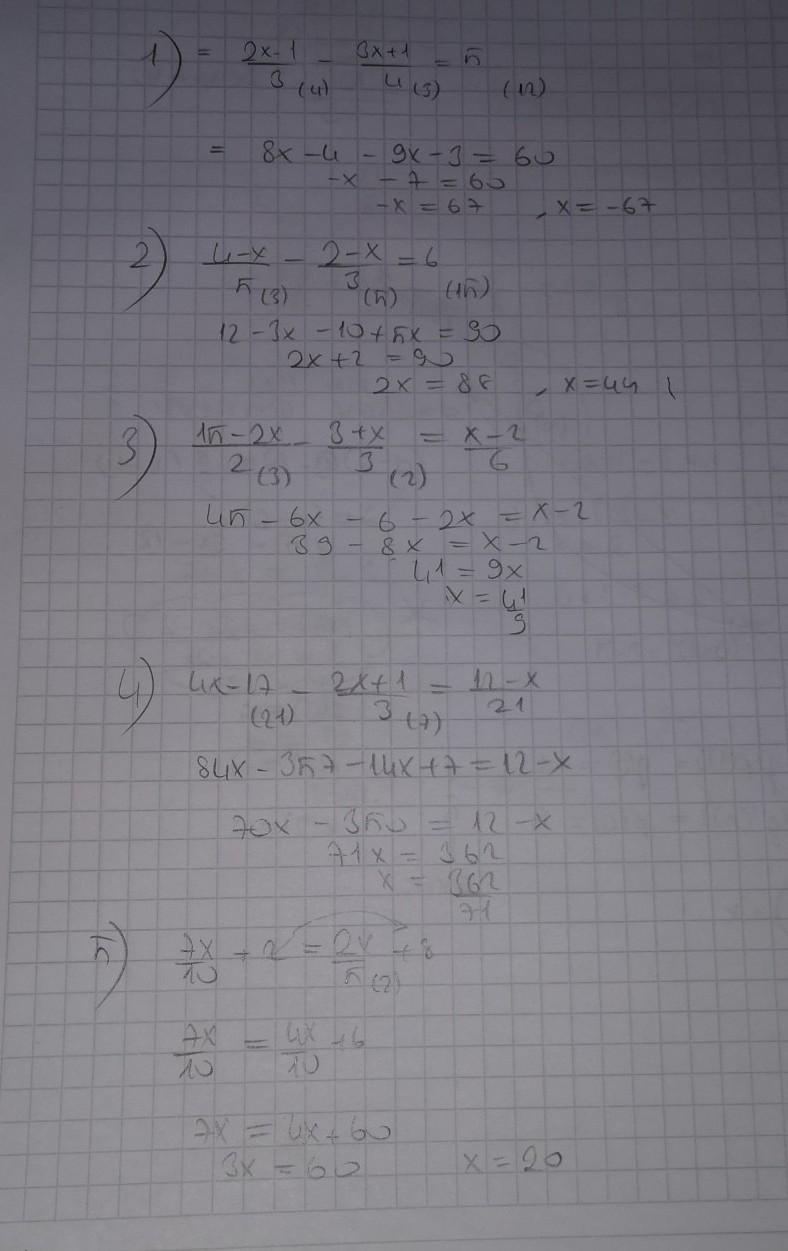 1) = (2x-1)/3 (4) - (3x+1)/4 (3) = 5 (12)
= 8x - 4 - 9x - 3 = 60
-x - 7 = 60
-x = 67 , x = -67
2) (4-x)/5 (3) - (2-x)/3 (5) = 6 (15)
12 - 3x - 10 + 5x = 90
2x + 2 = 90
2x = 88 , x = 44
3) (15-2x)/2 (3) - (3+x)/3 (2) = (x-2)/6
45 - 6x - 6 - 2x = x - 2
39 - 8x = x - 2
41 = 9x
x = 41/9
4) 4x-17 (21) - (2x+1)/3 (7) = (12-x)/21
84x - 357 - 14x + 7 = 12 - x
70x - 350 = 12 - x
71x = 362
x = 362/71
5) 7x/10 + 2 = 2x/5 (2) + 8
7x/10 = 4x/10 + 6
7x = 4x + 60
3x = 60 x = 20